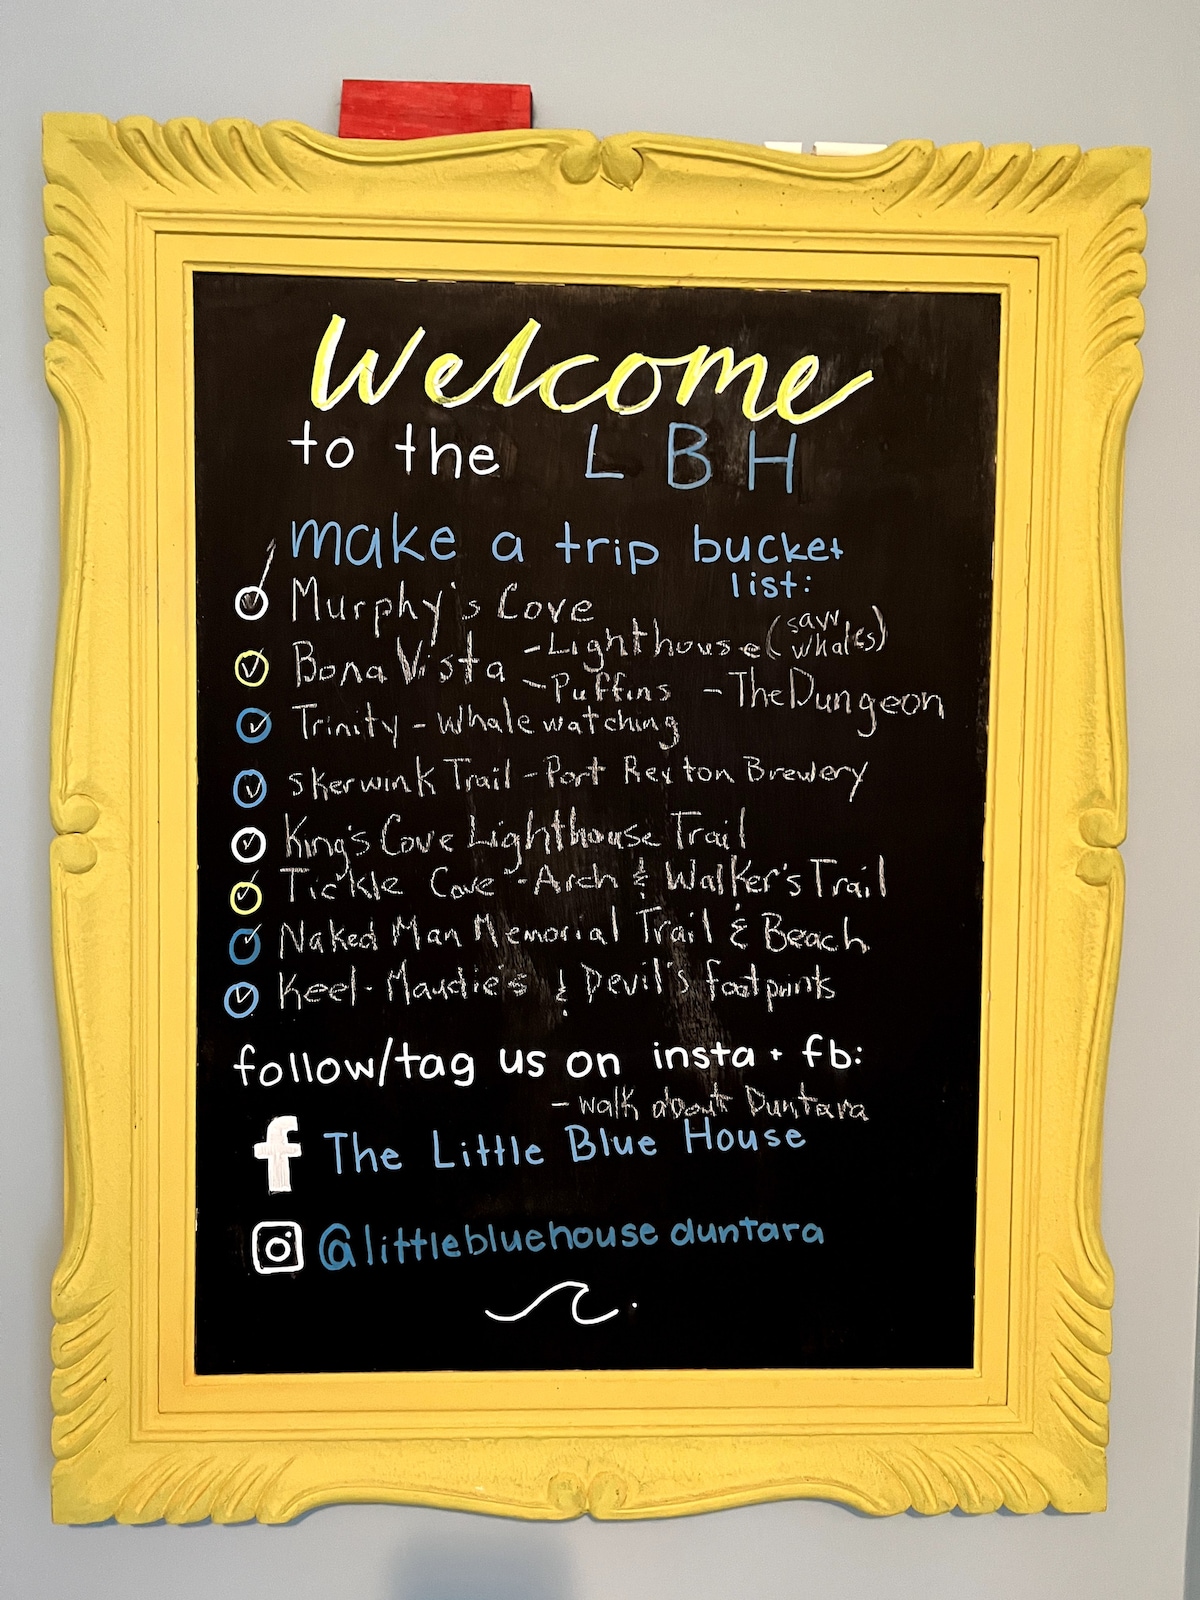 Welcome
to the LBH
make a trip bucket
list:
Murphy's Cove
Bona Vista - Lighthouse (saw whales)
- Puffins - The Dungeon
Trinity - Whale watching
Skerwink Trail - Port Rexton Brewery
King's Cove Lighthouse Trail
Tickle Cove - Arch & Walker's Trail
Naked Man Memorial Trail & Beach
Keel - Maudie's & Devil's footprints
follow/tag us on insta + fb:
- walk about Duntara
f The Little Blue House
@littlebluehouseduntara